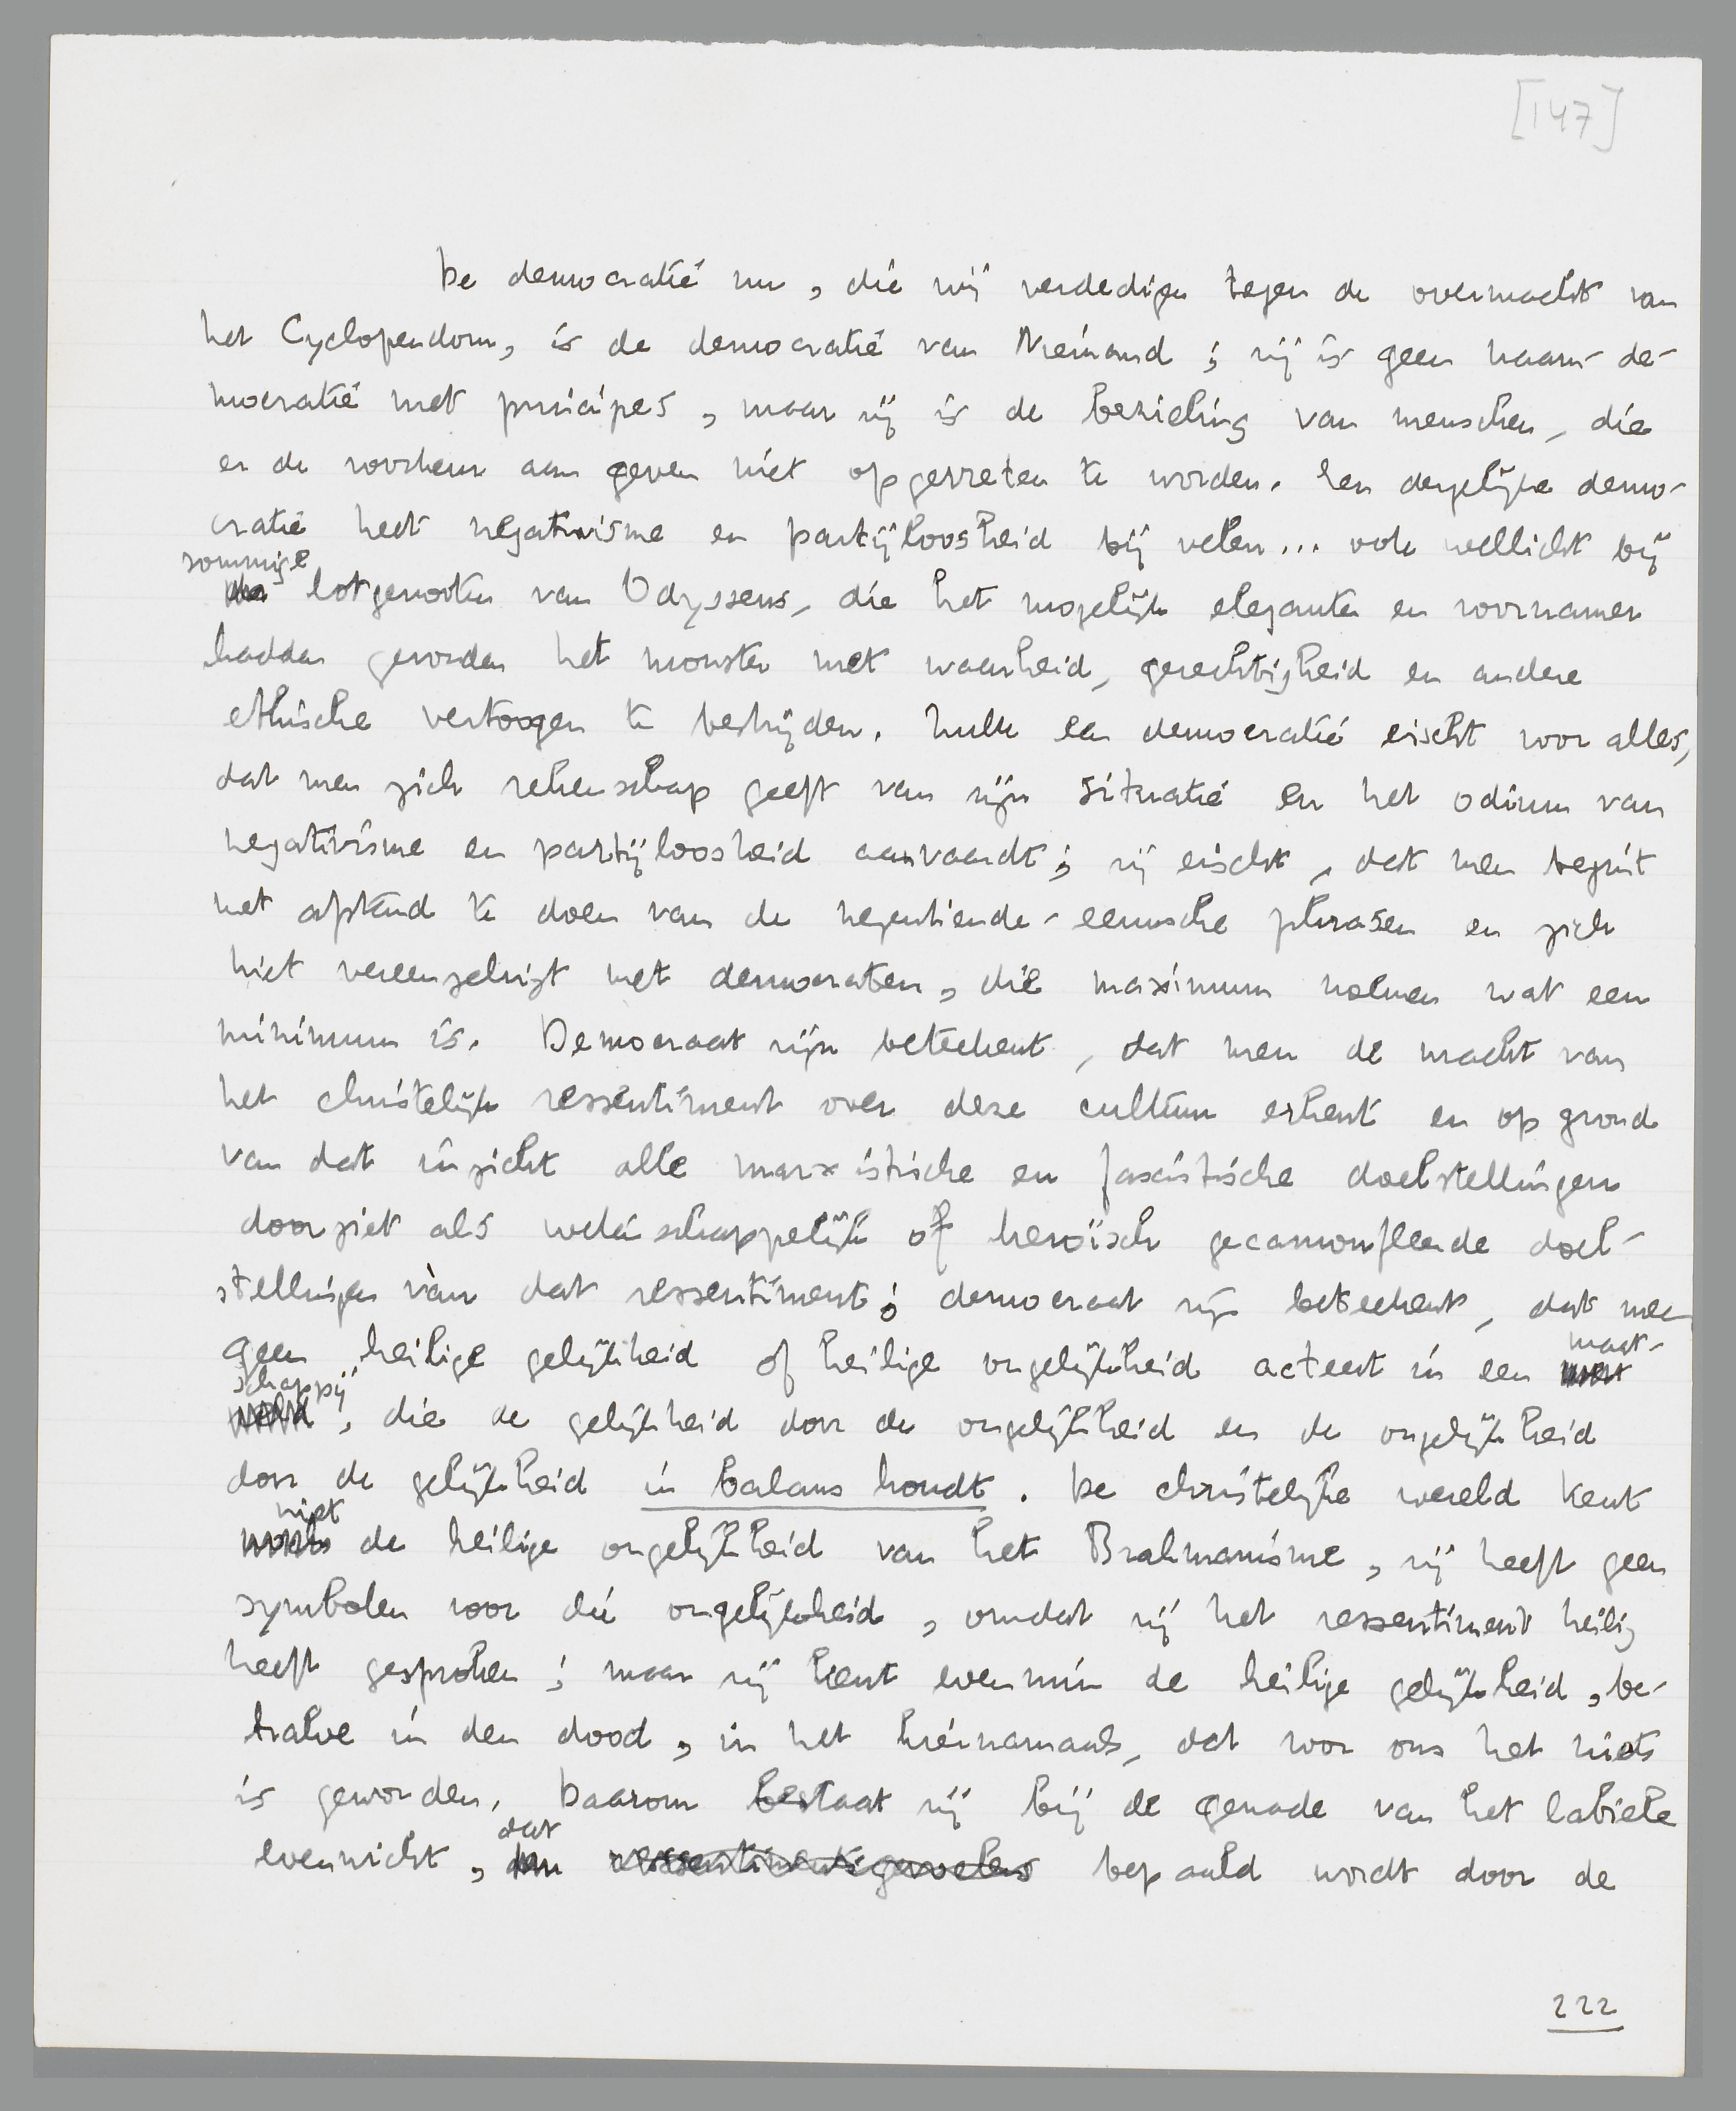 [147]
De democratie nu, die wij verdedigen tegen de overmacht van
het Cyclopendom, is de democratie van Niemand; zij is geen naam-de-
mocratie met principes, maar zij is de bezieling van menschen, die
er de voorkeur aan geven niet opgevreten te worden. Een dergelijke demo-
cratie heet negativisme en partijloosheid bij velen... ook wellicht bij
sommige
lotgenooten van Odysseus, die het mogelijk eleganter en voornamer
hadden gevonden het monster met waarheid, gerechtigheid en andere
ethische vertoogen te bestrijden. Zulk een democratie eischt voor alles,
dat men zich rekenschap geeft van zijn situatie en het odium van
negativisme en partijloosheid aanvaardt; zij eischt, dat men begint
met afstand te doen van de negentiende-eeuwsche phrasen en zich
niet vereenzelvigt met democraten, die maximum noemen wat een
minimum is. Democraat zijn beteekent, dat men de macht van
het christelijk ressentiment over deze cultuur erkent en op grond
van dat inzicht alle marxistische en fascistische doelstellingen
doorziet als wetenschappelijk of heroïsch gecamoufleerde doel-
stellingen vàn dat ressentiment; democraat zijn beteekent, dat men
geen heilige gelijkheid of heilige ongelijkheid acteert in een maat-
schappij, die de gelijkheid door de ongelijkheid en de ongelijkheid
door de gelijkheid in balans houdt. De christelijke wereld kent
niet
de heilige ongelijkheid van het Brahmanisme, zij heeft geen
symbolen voor die ongelijkheid, omdat zij het ressentiment heilig
heeft gesproken; maar zij kent evenmin de heilige gelijkheid, be-
halve in den dood, in het hiernamaals, dat voor ons het niets
is geworden. Daarom bestaat zij bij de genade van het labiele
evenwicht, dat ressentimentsgevoelens bepaald wordt door de
222